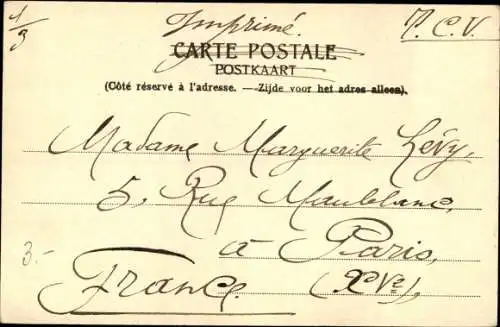 1/3
Imprimé.
T.C.V.
CARTE POSTALE
POSTKAART
(Côté réservé à l'adresse. — Zijde voor het adres alleen).
Madame Marguerite Lévy,
5, Rue Maublanc,
à Paris,
3.-
France. (XVe),